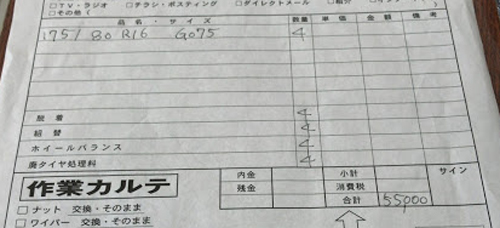 □TV・ラジオ □チラシ・ポスティング □ダイレクトメール
□その他(
品名・サイズ 数量 単価 金額 備考
175/80R16 G075 4
脱着 4
組替 4
ホイールバランス 4
廃タイヤ処理料 4
作業カルテ 内金 小計 サイン
残金 消費税
合計 55000
□ナット 交換・そのまま
□ワイパー 交換・そのまま